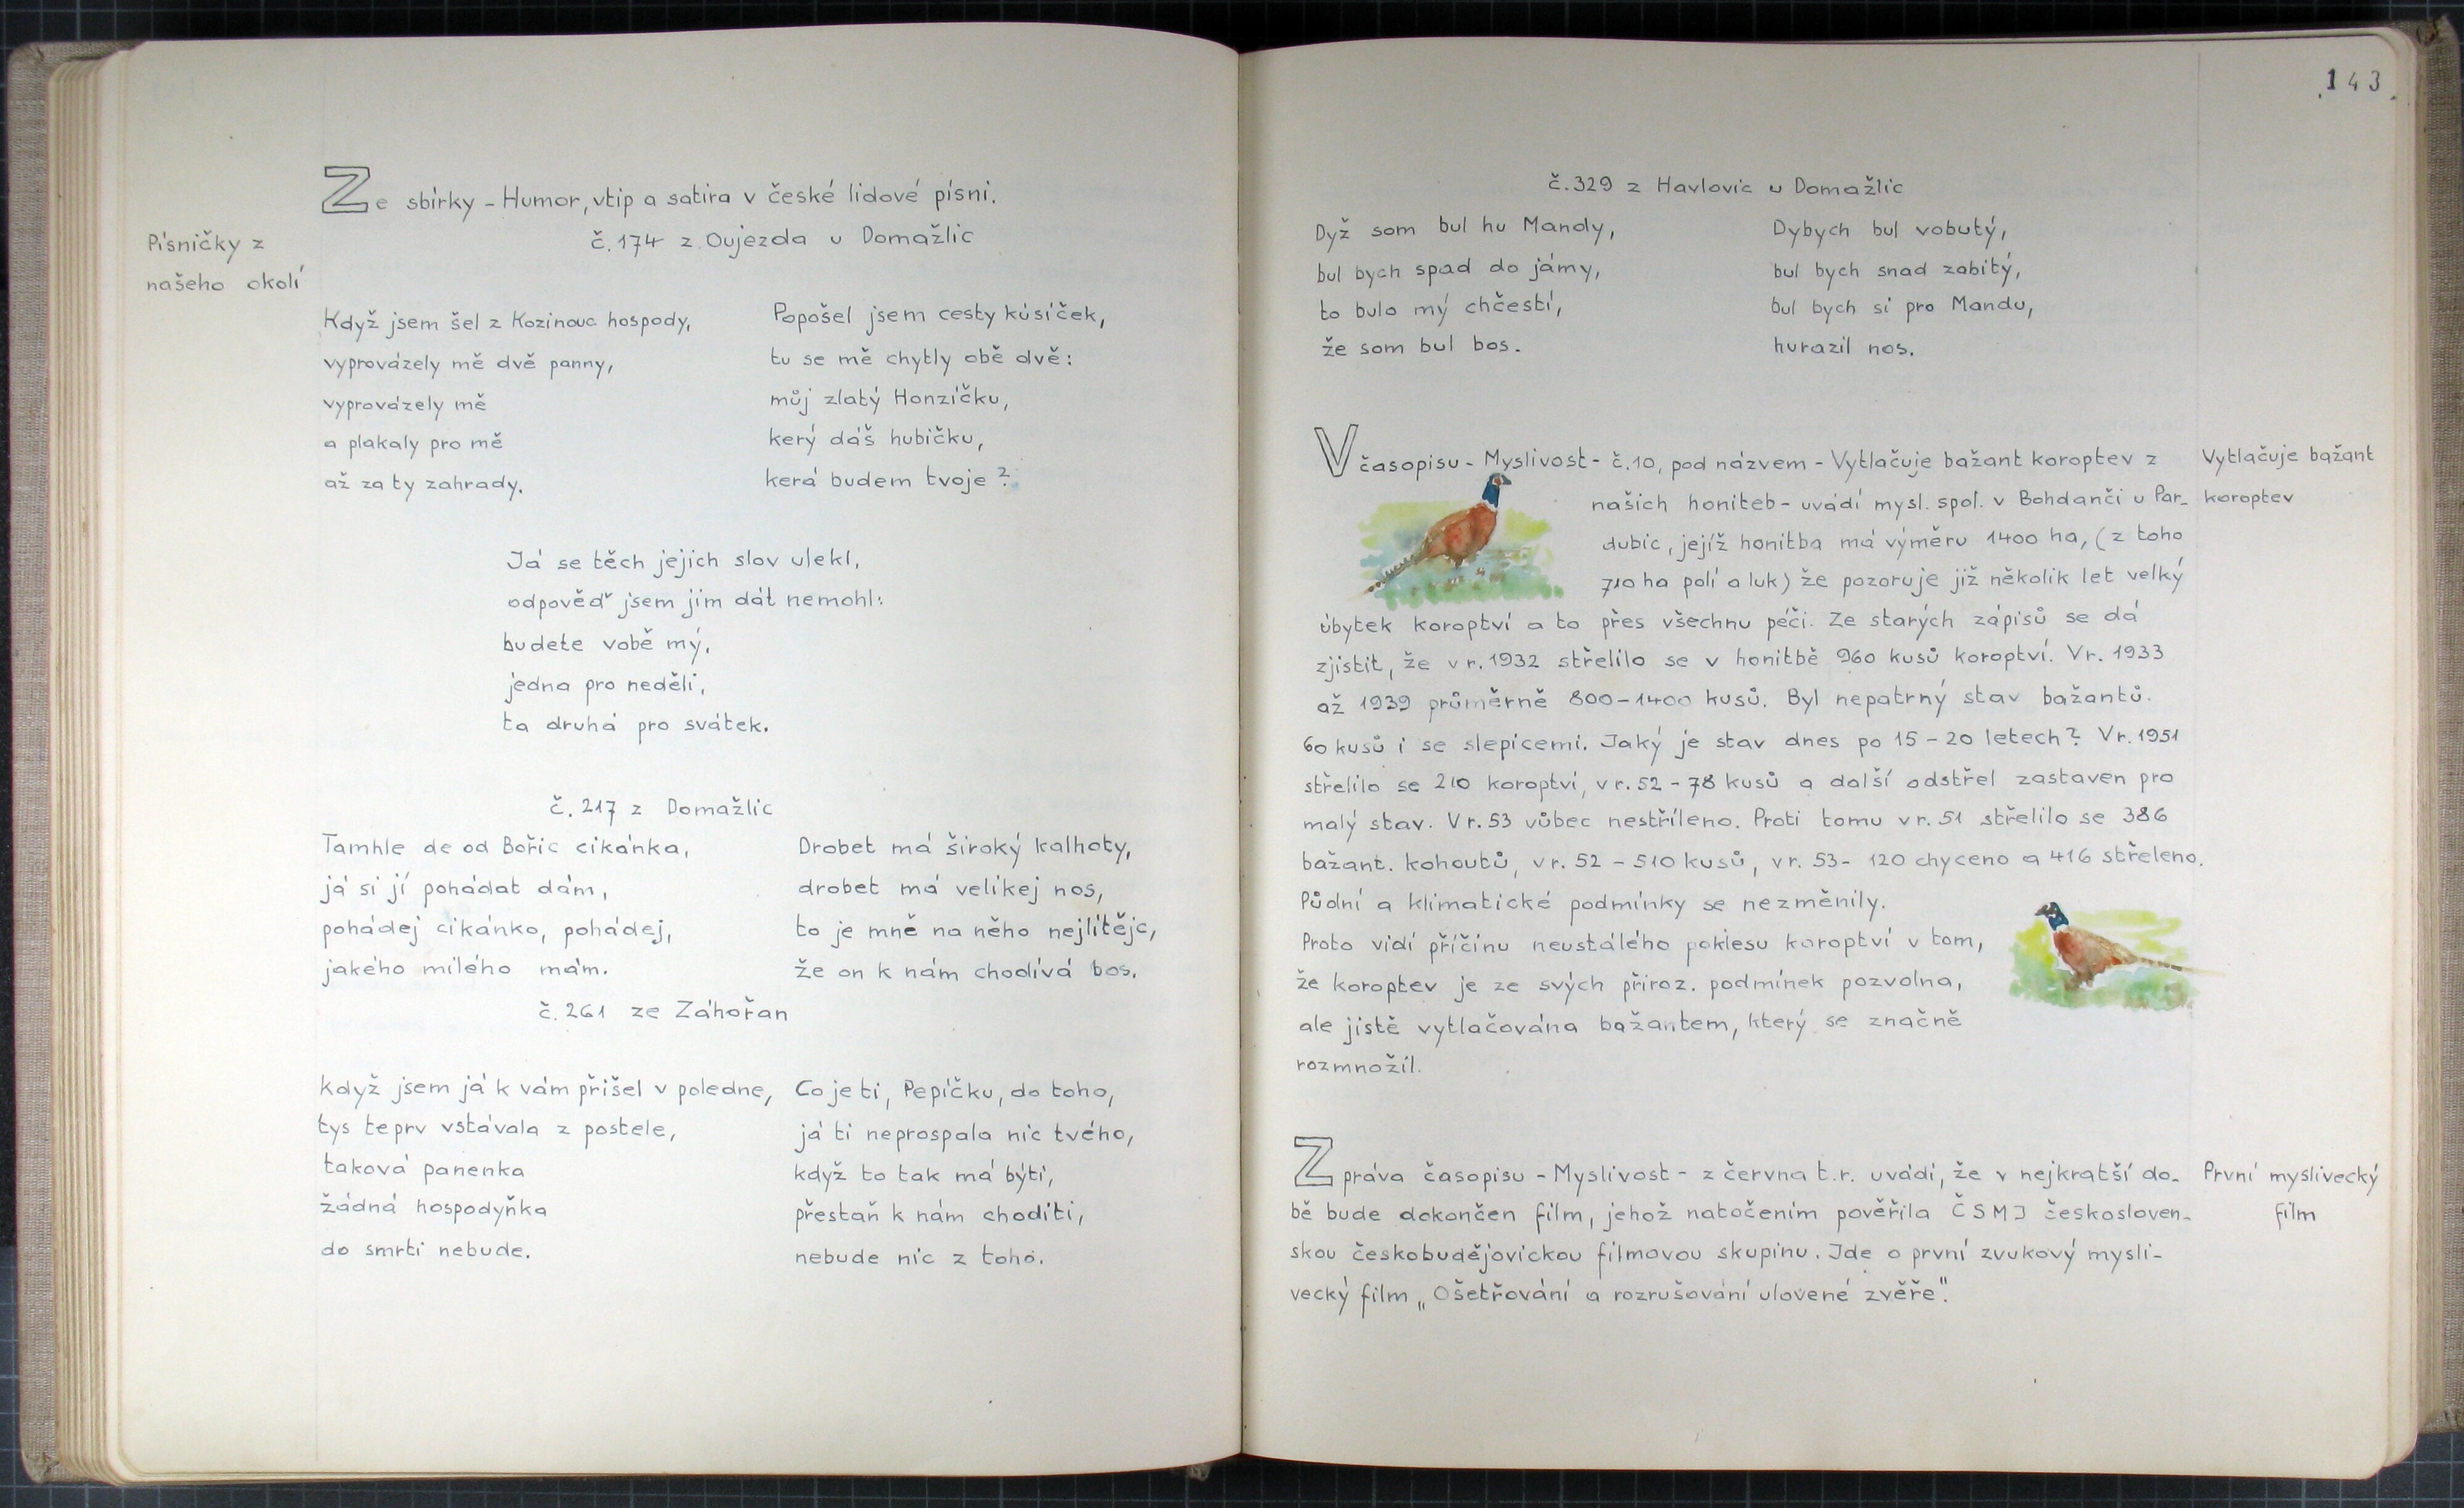 Ze sbírky - Humor, vtip a satira v české lidové písni.
č. 174 z Oujezda u Domažlic
Písničky z
našeho okolí
Když jsem šel z Kozinouc hospody,
vyprovázely mě dvě panny,
vyprovázely mě
a plakaly pro mě
až za ty zahrady.
Popošel jsem cesty kúsíček,
tu se mě chytly obě dvě:
můj zlatý Honzíčku,
kerý dáš hubičku,
kerá budem tvoje?
Já se těch jejich slov ulekl,
odpověď jsem jim dát nemohl:
budete vobě mý,
jedna pro neděli,
ta druhá pro svátek.
č. 217 z Domažlic
Tamhle de od Bořic cikánka,
já si jí pohádat dám,
pohádej cikánko, pohádej,
jakého milého mám.
Drobet má široký kalhoty,
drobet má velikej nos,
to je mně na něho nejlítějc,
že on k nám chodívá bos.
č. 261 ze Záhořan
Když jsem já k vám přišel v poledne,
tys teprv vstávala z postele,
taková panenka
žádná hospodyňka
do smrti nebude.
Co je ti, Pepíčku, do toho,
já ti neprospala nic tvého,
když to tak má býti,
přestaň k nám choditi,
nebude nic z toho.
143.
č. 329 z Havlovic u Domažlic
Dyž som bul hu Mandy,
bul bych spad do jámy,
to bulo mý chčestí,
že som bul bos.
Dybych bul vobutý,
bul bych snad zabitý,
bul bych si pro Mandu,
hurazil nos.
V časopisu - Myslivost - č. 10, pod názvem - Vytlačuje bažant koroptev z
našich honiteb - uvádí mysl. spol. v Bohdanči u Par-
dubic, jejíž honitba má výměru 1400 ha, (z toho
710 ha polí a luk) že pozoruje již několik let velký
úbytek koroptví a to přes všechnu péči. Ze starých zápisů se dá
zjistit, že v r. 1932 střelilo se v honitbě 960 kusů koroptví. V r. 1933
až 1939 průměrně 800-1400 kusů. Byl nepatrný stav bažantů.
60 kusů i se slepicemi. Jaký je stav dnes po 15 - 20 letech? V r. 1951
střelilo se 210 koroptví, v r. 52 - 78 kusů a další odstřel zastaven pro
malý stav. V r. 53 vůbec nestříleno. Proti tomu v r. 51 střelilo se 386
bažant. kohoutů, v r. 52 - 510 kusů, v r. 53 - 120 chyceno a 416 střeleno.
Půdní a klimatické podmínky se nezměnily.
Proto vidí příčinu neustálého poklesu koroptví v tom,
že koroptev je ze svých přiroz. podmínek pozvolna,
ale jistě vytlačována bažantem, který se značně
rozmnožil.
Vytlačuje bažant
koroptev
Zpráva časopisu - Myslivost - z června t.r. uvádí, že v nejkratší do-
bě bude dokončen film, jehož natočením pověřila ČSMJ českosloven-
skou českobudějovickou filmovou skupinu. Jde o první zvukový mysli-
vecký film „Ošetřování a rozrušování ulovené zvěře".
První myslivecký
film